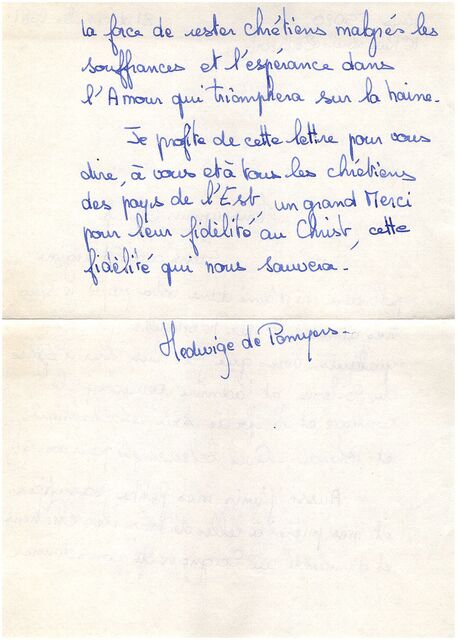 la force de rester chrétiens malgrés les
souffrances et l'espérance dans
l'Amour qui triomphera sur la haine.
Je profite de cette lettre pour vous
dire, à vous et à tous les chrétiens
des pays de l'Est, un grand Merci
pour leur fidélité au Christ, cette
fidélité qui nous sauvera.
Hedwige de Pomyers.